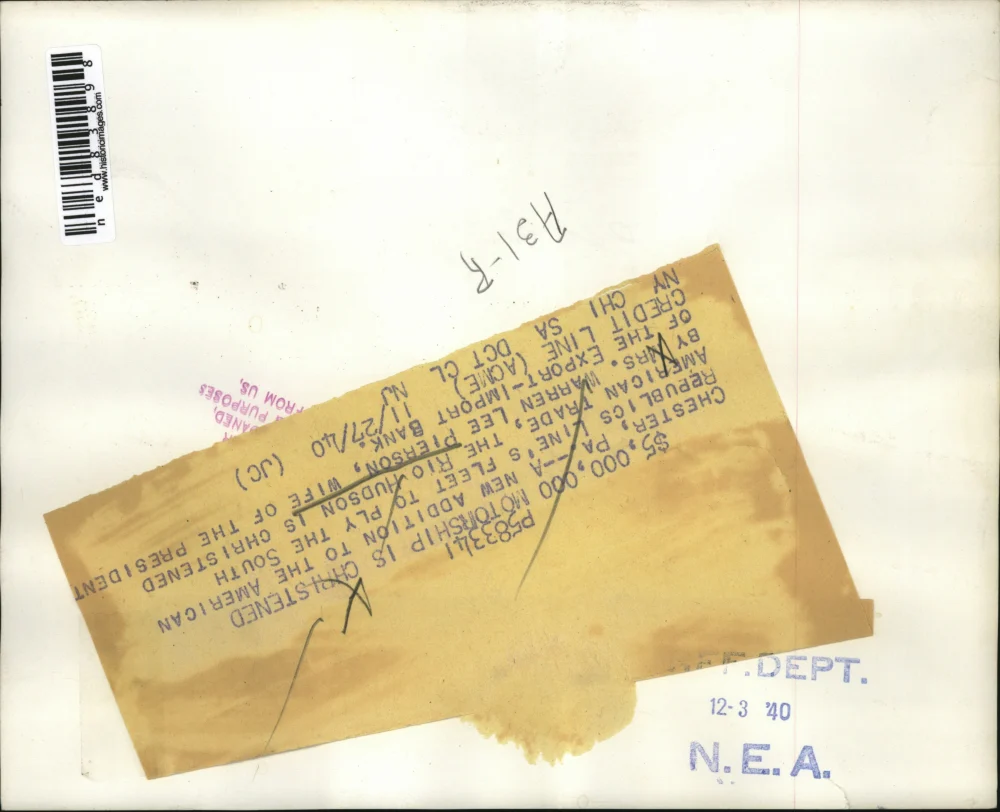 n e d 8 3 8 9 8
www.historicimages.com
A31-R
PURPOSES
FROM US,
P583341
$5,000,000 MOTORSHIP IS CHRISTENED
CHESTER, PA.--A NEW ADDITION TO THE AMERICAN
REPUBLICS LINE'S FLEET TO PLY THE SOUTH
AMERICAN TRADE, THE RIO HUDSON IS CHRISTENED
BY MRS. WARREN LEE PIERSON, WIFE OF THE PRESIDENT
OF THE EXPORT-IMPORT BANK.
CREDIT LINE (ACME) 11/27/40 (JC)
NY CHI SA DCT CL NJ
DEPT.
12-3 '40
N.E.A.